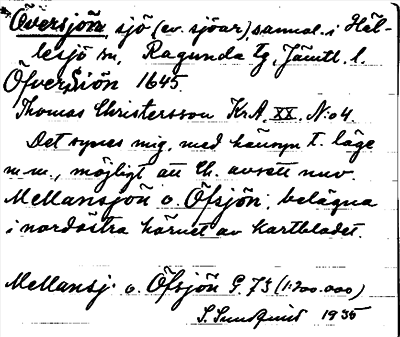 *Översjön, sjö (ev. sjöar), samml. i Häl-
lesjö sn, Ragunda tg, Jämtl. l.
Öfversiön 1645.
Thomas Christersson KrA. XX. No 4.
Det synes mig, med hänsyn t. läge
m.m., möjligt att Ch. avsett nuv.
Mellansjön o. Öfsjön, belägna
i nordöstra hörnet av kartbladet.
Mellansj. o. Öfsjön G. 73 (1:200.000)
S. Sundquist 1935